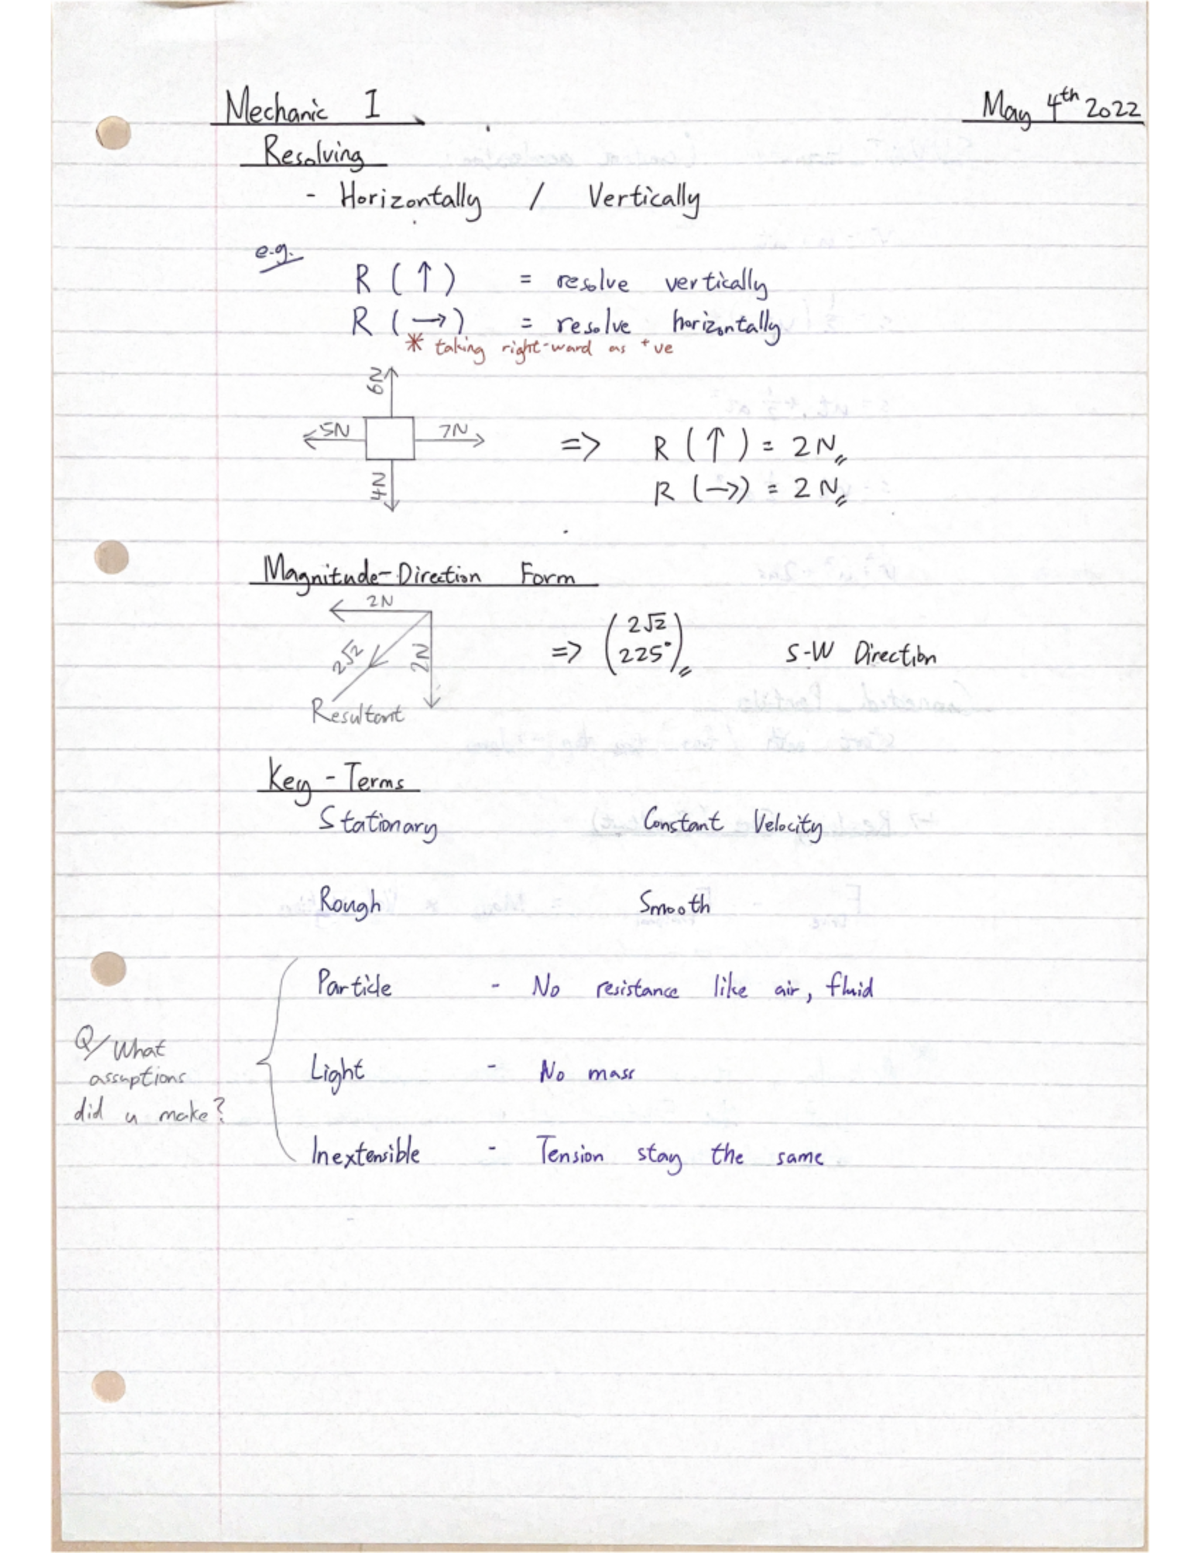 Mechanic I
May 4th 2022
Resolving
- Horizontally / Vertically
e.g.
R (↑) = resolve vertically
R (→) = resolve horizontally
* taking right-ward as +ve
6N
5N 7N
4N
=> R (↑) = 2N
R (→) = 2N
Magnitude-Direction Form
2N
2√2
2N
Resultant
=> (2√2
225°)
S-W Direction
Key-Terms
Stationary Constant Velocity
Rough Smooth
Particle - No resistance like air, fluid
Q/ What
assuptions
did u make?
Light - No mass
Inextensible - Tension stay the same